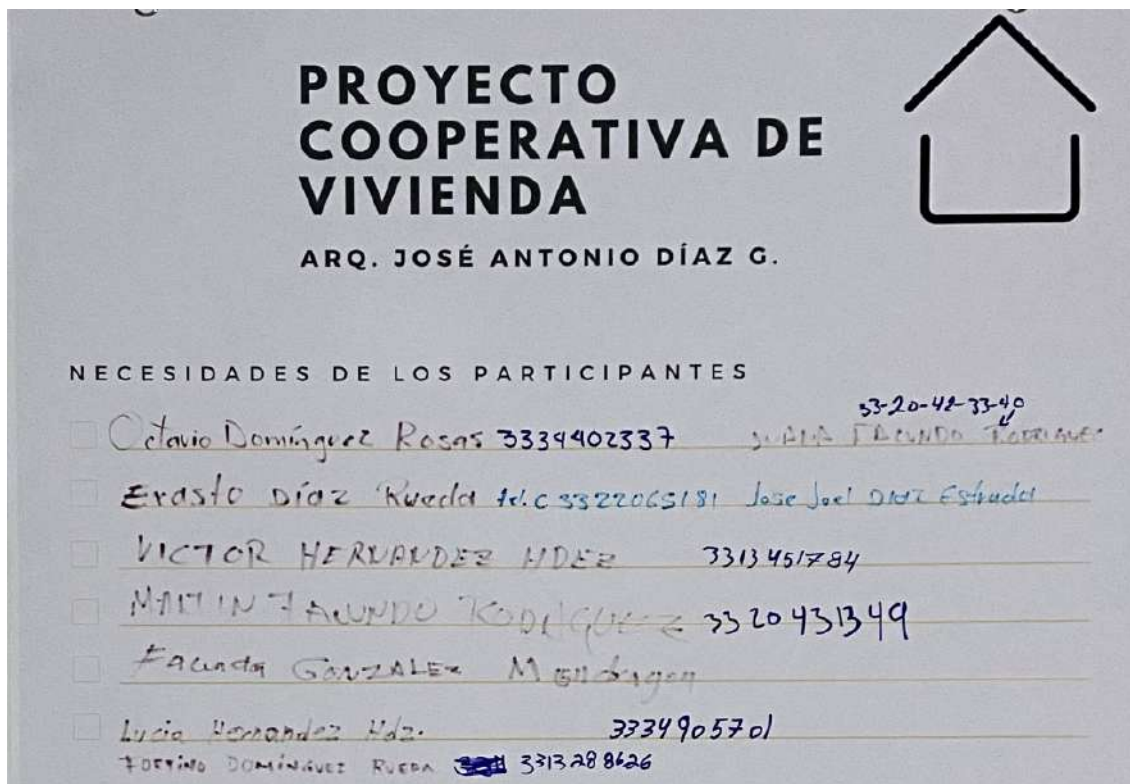 PROYECTO
COOPERATIVA DE
VIVIENDA
ARQ. JOSÉ ANTONIO DÍAZ G.
NECESIDADES DE LOS PARTICIPANTES
33-20-42-33-40
Octavio Domínguez Rosas 3334402337 JUANA FACUNDO RODRIGUEZ
Erasto Díaz Rueda tel.c 3322065181 Jose Joel DIAZ Estrada
VICTOR HERNANDEZ HDEZ 3313451784
MARTIN FACUNDO RODRIGUEZ 3320431349
Facunda GONZALEZ Mondragon
Lucia Hernandez Hdz. 3334905701
DOMINGUEZ RUEDA 3313288626